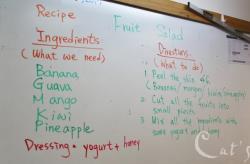 Recipe
Fruit Salad
Ingredients:
(What we need)
Banana
Guava
Mango
Kiwi
Pineapple
Dressing. yogurt + honey
Directions:
(What to do)
1 Peel the skin off
(Bananas/mango/kiwi/pineapple)
2. Cut all the fruits into
small pieces
3. Mix all the ingredients with
some yogurt and honey
Cat's